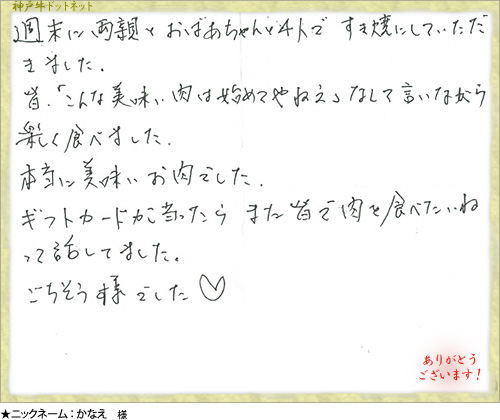 神戸牛ドットネット
週末に両親とおばあちゃんと4人で すき焼にしていただ
きました。
皆、「こんな美味い肉は始めてやねえ」なんて言いながら
楽しく食べました。
本当に美味いお肉でした。
ギフトカードが当ったら また皆で肉を食べたいね
って話してました。
ごちそう様でした♡
ありがとう
ございます!
★ニックネーム:かなえ 様